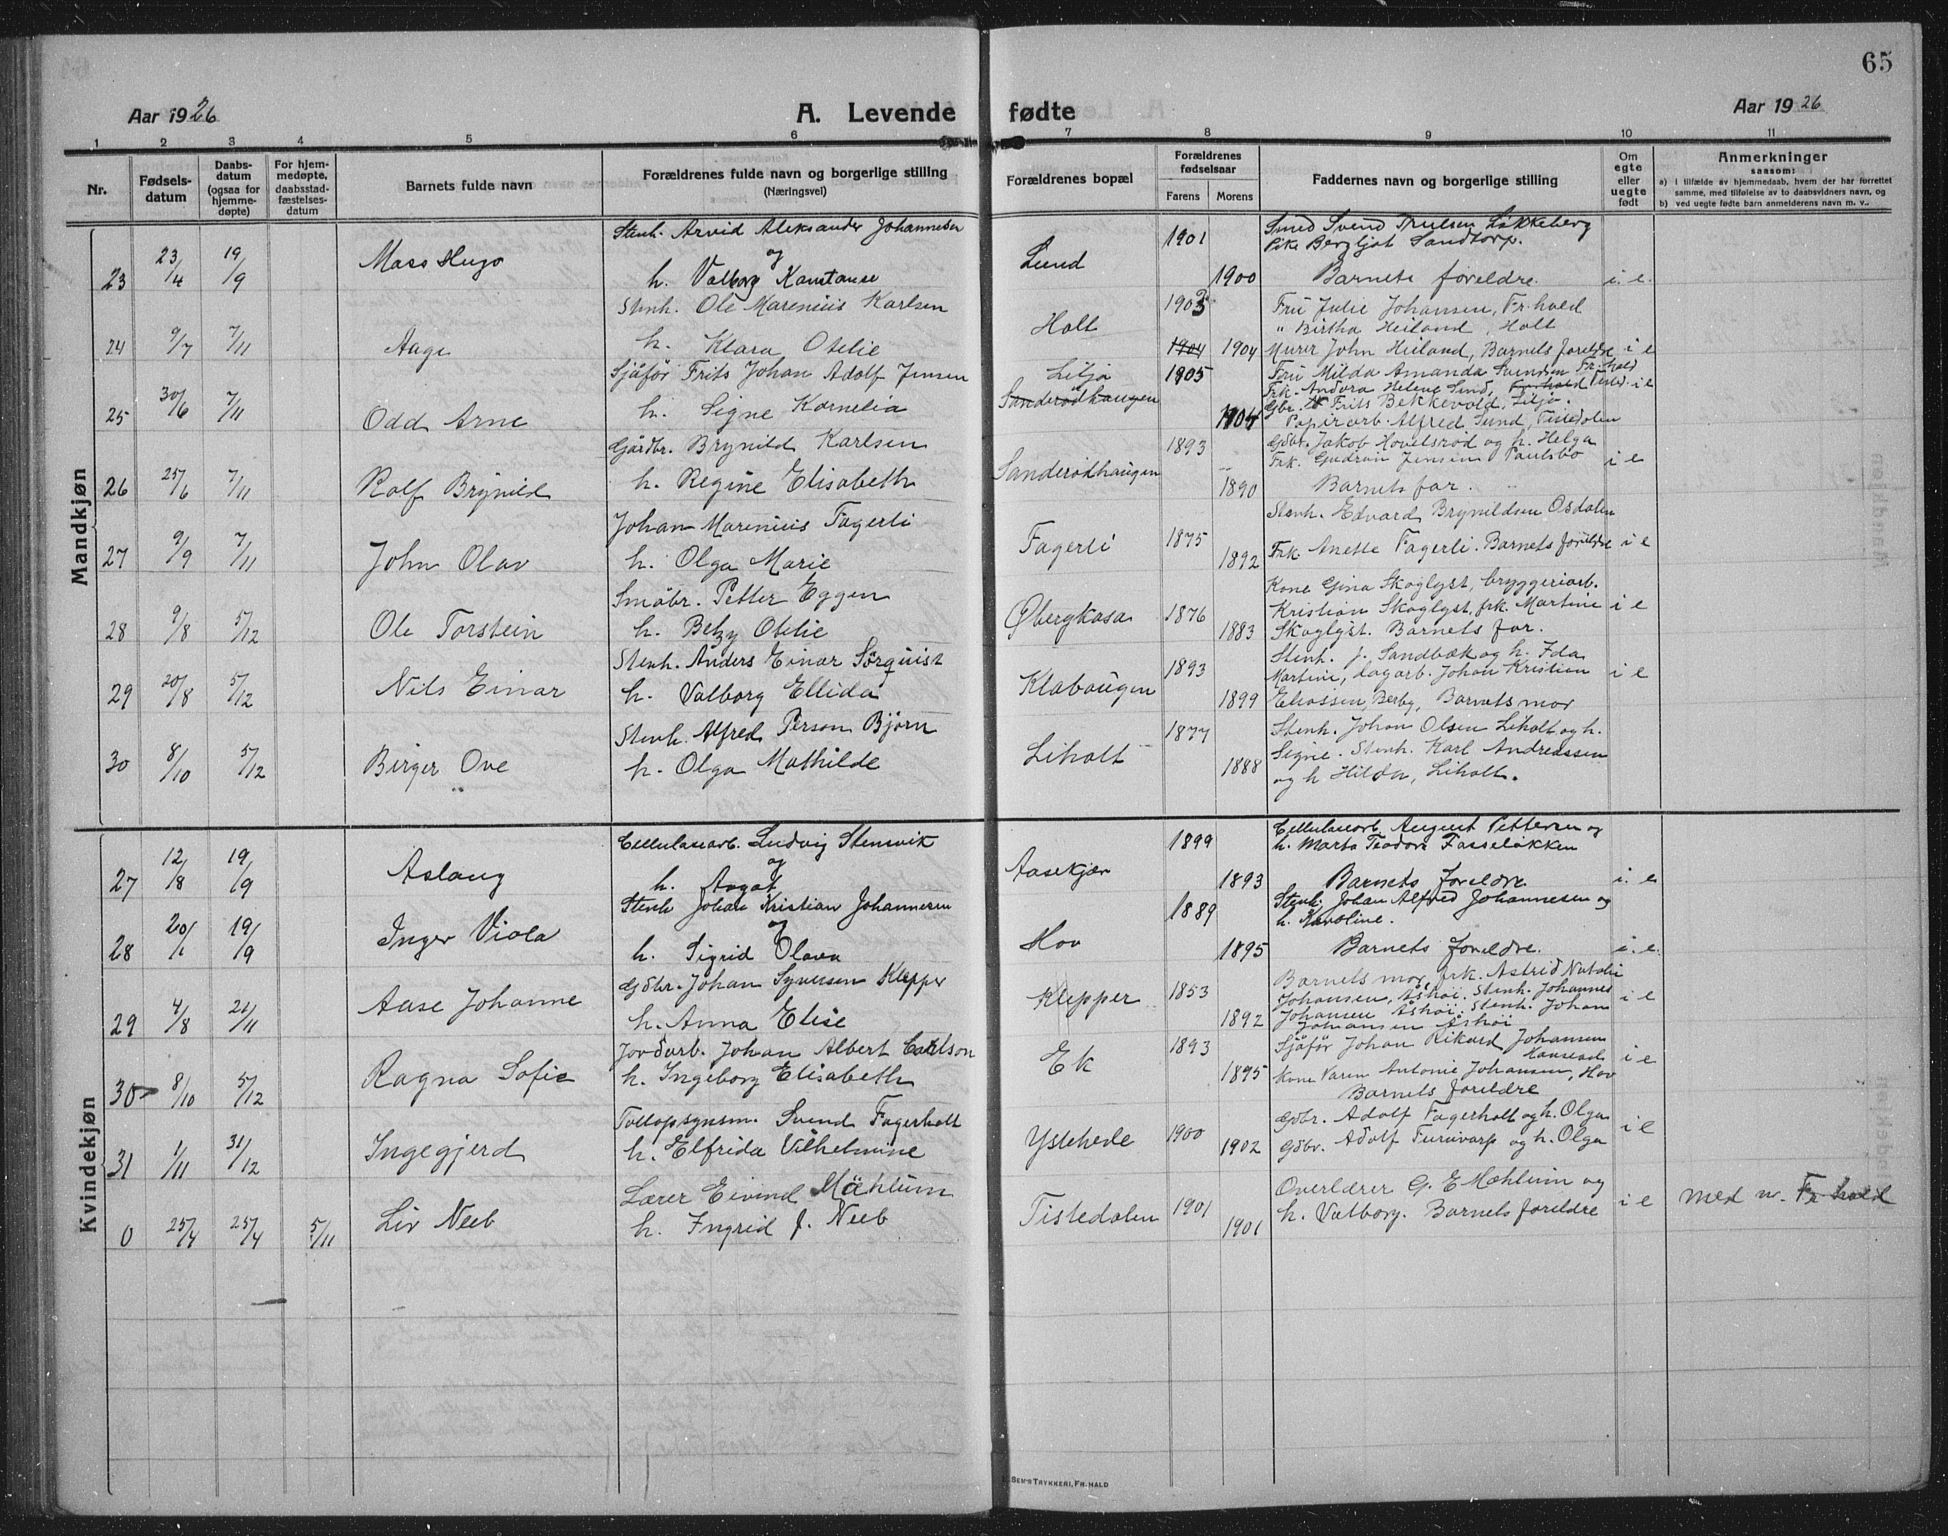 65
Aar 1926
A. Levende fødte
Aar 1926
1 2 3 4 5 6 7 8 9 10 11
Nr.
Fødsels-
datum
Daabs-
datum
(ogsaa for
hjemme-
døpte)
For hjem-
medøpte,
daabsstad-
fæstelses-
datum
Barnets fulde navn
Forældrenes fulde navn og borgerlige stilling
(Næringsvei)
Forældrenes bopæl
Forældrenes
fødselsaar
Farens Morens
Faddernes navn og borgerlige stilling
Om
egte
eller
uegte
født
Anmerkninger
saasom:
a) i tilfælde av hjemmedaab, hvem der har forrettet
samme, med tilføielse av to daabsvidners navn, og
b) ved uegte fødte barn anmelderens navn m. v..
Mandkjøn
23 23/4 19/9 Mass Hugo
Stenh. Arvid Aleksander Johannesen
og
h. Valborg Konstanse
Lund 1901 1900
Smed Svend Trulsen Løkkeberg
Pike Bergljot Sandtorp.
Barnets foreldre. i. e.
24 9/7 7/11 Aage
Stenh. Ole Marenius Karlsen
h. Klara Otelie
Holt 1903 1904 1904
Fru Julie Johansen, Fr.hald
" Birtha Heiland, Holt
Murer John Heiland, Barnets foreldre i e
25 30/6 7/11 Odd Arne
Sjåfør Frits Johan Adolf Jensen
h. Signe Kornelia
Lilja
Sanderødhaugen 1905 1904
Fru Milda Amanda Svendsen Fr.hald
Frk. Andora Helene Lund, Fr.hald Tisted. i e
Gbr. Frits Bekkevold, Lilja.
Papirarb. Alfred Lund, Tistedalen
26 25/6 7/11 Rolf Brynild
Gårdbr. Brynild Karlsen
h. Regine Elisabeth
Sanderødhaugen 1893 1890
Gdbr. Jakob Hovelsrød og h. Helga
Frk. Gudrun Jensen Paulsbo i e
Barnets far.
27 9/9 7/11 John Olav
Johan Marenius Fagerli
h. Olga Marie
Fagerli 1875 1892
Stenh. Edvard Brynildsen Osdalen
Frk Anette Fagerli. Barnets foreldre i e
28 9/8 5/12 Ole Torstein
Småbr. Petter Eggen
h. Betzy Otelie
Øbergkasa 1876 1883
Kone Gina Skoglyst, bryggeriarb.
Kristian Skoglyst, frk. Martine i e
Skoglyst. Barnets far.
29 20/8 5/12 Nils Einar
Stenh. Anders Einar Sörquist
h. Valborg Ellida
Klabaugen 1893 1899
Stenh. J. Sandbæk og h. Ida
Martine, dagarb. Johan Kristian i e
Eliassen, Berby, Barnets mor
30 8/10 5/12 Birger Ove
Stenh. Alfred Person Björn
h. Olga Mathilde
Liholt 1877 1888
Stenh. Johan Olsen Liholt og h.
Signe. Stenh. Karl Andreassen
og h Hilda, Liholt.
Kvindekjøn
27 12/8 19/9 Aslaug
Cellulosearb. Ludvig Stensvik
og
h. Aagot
Aasekjær 1899 1893
Cellulosearb August Pettersen og
h. Marta Teodora Fasseløkken
Barnets foreldre. i. e
28 20/1 19/9 Inger Viola
Stenh Johan Kristian Johannesen
og
h. Sigrid Olava
Hov 1889 1895
Stenh. Johan Alfred Johannesen og
h. Karoline.
Barnets foreldre. i. e.
29 4/8 21/11 Aase Johanne
Gdbr. Johan Syversen Klepper
h. Anna Elise
Klepper 1853 1892
Barnets mor, frk. Astrid Natalie
Johansen, Åshøi. Stenh. Johannes i e
Johansen Åshøi. Stenh. Johan
Johansen Åshøi
30 8/10 5/12 Ragna Sofie
Jordarb. Johan Albert Carlson
h. Ingeborg Elisabeth
Ek 1893 1895
Sjåfør Johan Rikard Johansen
i e
Kone Karen Antonie Johansen, Hov
Barnets foreldre
31 1/11 31/12 Ingegjerd
Tollopsynsm. Svend Fagerholt
h. Elfrida Vilhelmine
Ystehede 1900 1902
Gdbr. Adolf Fagerholt og h. Olga
Gdbr. Adolf Furuvarp og h. Olga i e
0 25/4 25/4 5/11 Liv Neeb
Lærer Eivind Mæhlum
h. Ingrid J. Neeb
Tistedalen 1901 1901
Overlærer G. E Mæhlum og
h. Valborg. Barnets foreldre i e
med n. Fr hald
SEM'S TRYKKERI, FR.HALD